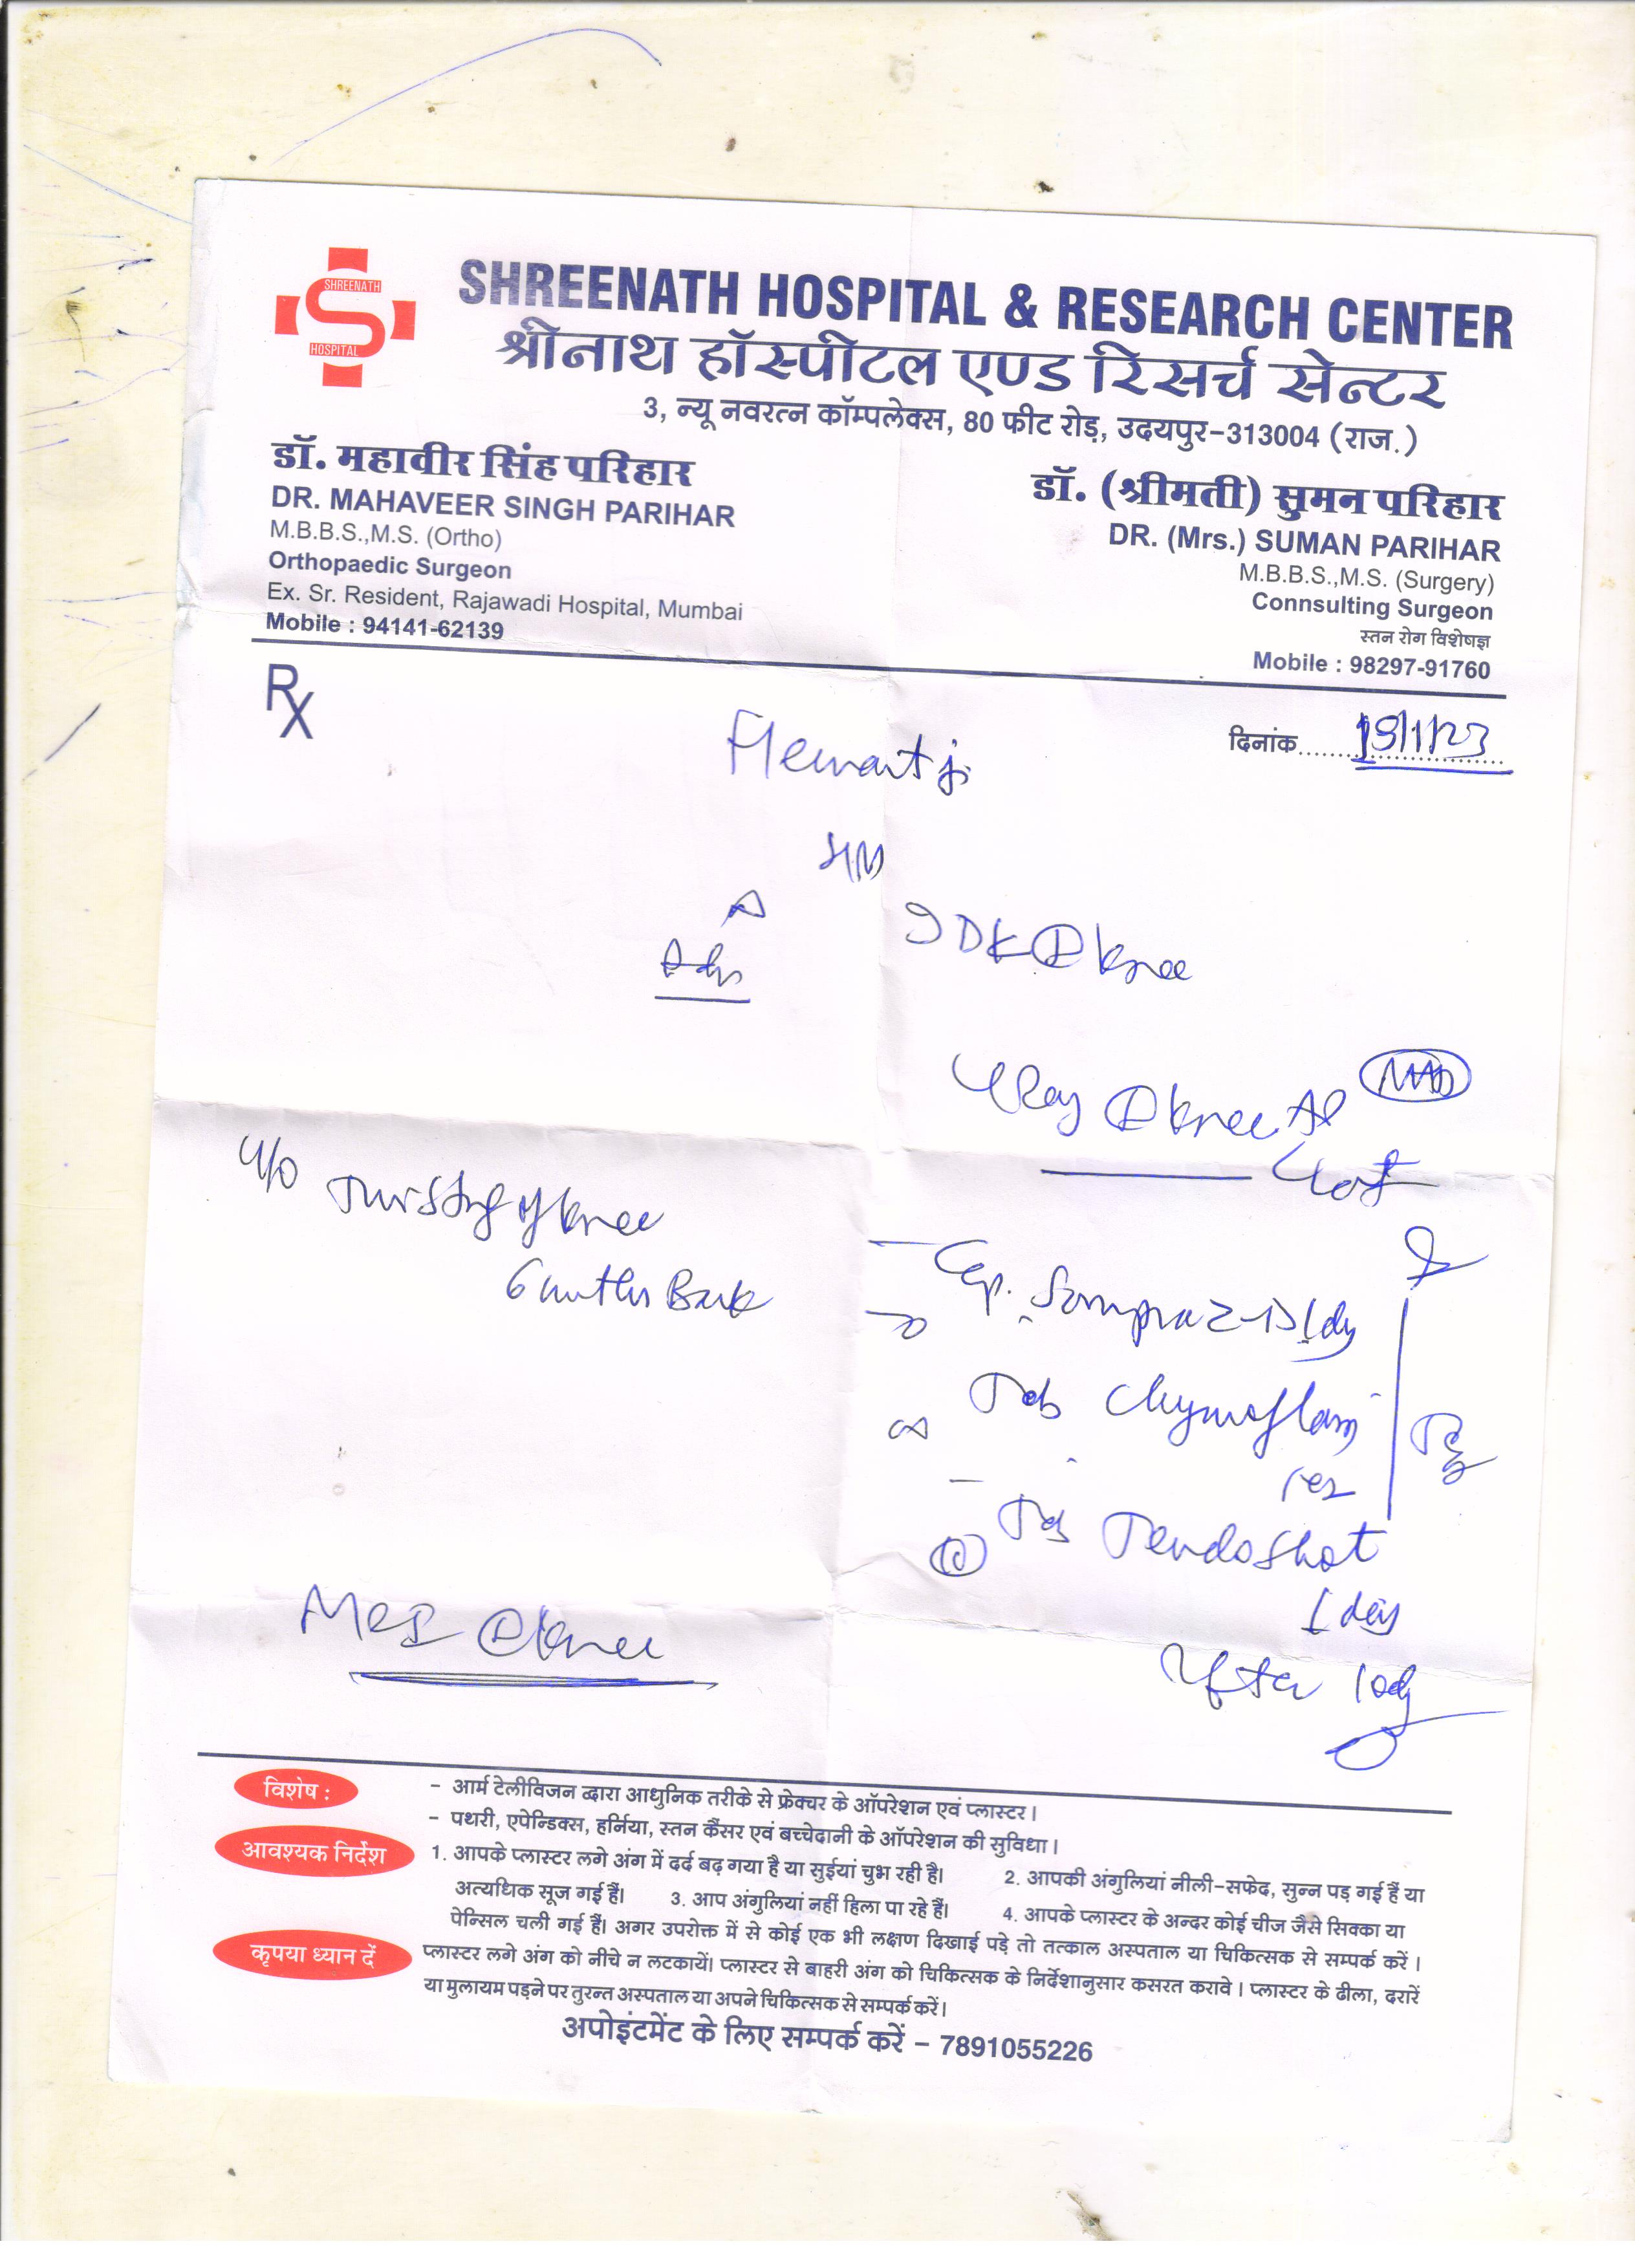 SHREENATH
HOSPITAL
SHREENATH HOSPITAL & RESEARCH CENTER
श्रीनाथ हॉस्पीटल एण्ड रिसर्च सेन्टर
3, न्यू नवरत्न कॉम्पलेक्स, 80 फीट रोड़, उदयपुर-313004 (राज.)
डॉ. महावीर सिंह परिहार
DR. MAHAVEER SINGH PARIHAR
M.B.B.S.,M.S. (Ortho)
Orthopaedic Surgeon
Ex. Sr. Resident, Rajawadi Hospital, Mumbai
Mobile : 94141-62139
डॉ. (श्रीमती) सुमन परिहार
DR. (Mrs.) SUMAN PARIHAR
M.B.B.S.,M.S. (Surgery)
Connsulting Surgeon
स्तन रोग विशेषज्ञ
Mobile : 98297-91760
Rx
दिनांक
Hemant ji
IDK knee
XRay knee AP
Lat
C/o Twisting of knee
6 months Back
Cap. Sompraz-D
Tab Chymoflam
Tab Tendoshot
1 day
After 10 day
MRI knee
विशेष :
- आर्म टेलीविजन द्वारा आधुनिक तरीके से फ्रेक्चर के ऑपरेशन एवं प्लास्टर।
- पथरी, एपेन्डिक्स, हर्निया, स्तन कैंसर एवं बच्चेदानी के ऑपरेशन की सुविधा।
आवश्यक निर्देश
1. आपके प्लास्टर लगे अंग में दर्द बढ़ गया है या सुईयां चुभ रही है। 2. आपकी अंगुलियां नीली-सफेद, सुन्न पड़ गई हैं या
अत्यधिक सूज गई हैं। 3. आप अंगुलियां नहीं हिला पा रहे हैं। 4. आपके प्लास्टर के अन्दर कोई चीज जैसे सिक्का या
पेन्सिल चली गई हैं। अगर उपरोक्त में से कोई एक भी लक्षण दिखाई पड़े तो तत्काल अस्पताल या चिकित्सक से सम्पर्क करें।
कृपया ध्यान दें
प्लास्टर लगे अंग को नीचे न लटकायें। प्लास्टर से बाहरी अंग को चिकित्सक के निर्देशानुसार कसरत करावे। प्लास्टर के ढीला, दरारें
या मुलायम पड़ने पर तुरन्त अस्पताल या अपने चिकित्सक से सम्पर्क करें।
अपोइंटमेंट के लिए सम्पर्क करें - 7891055226